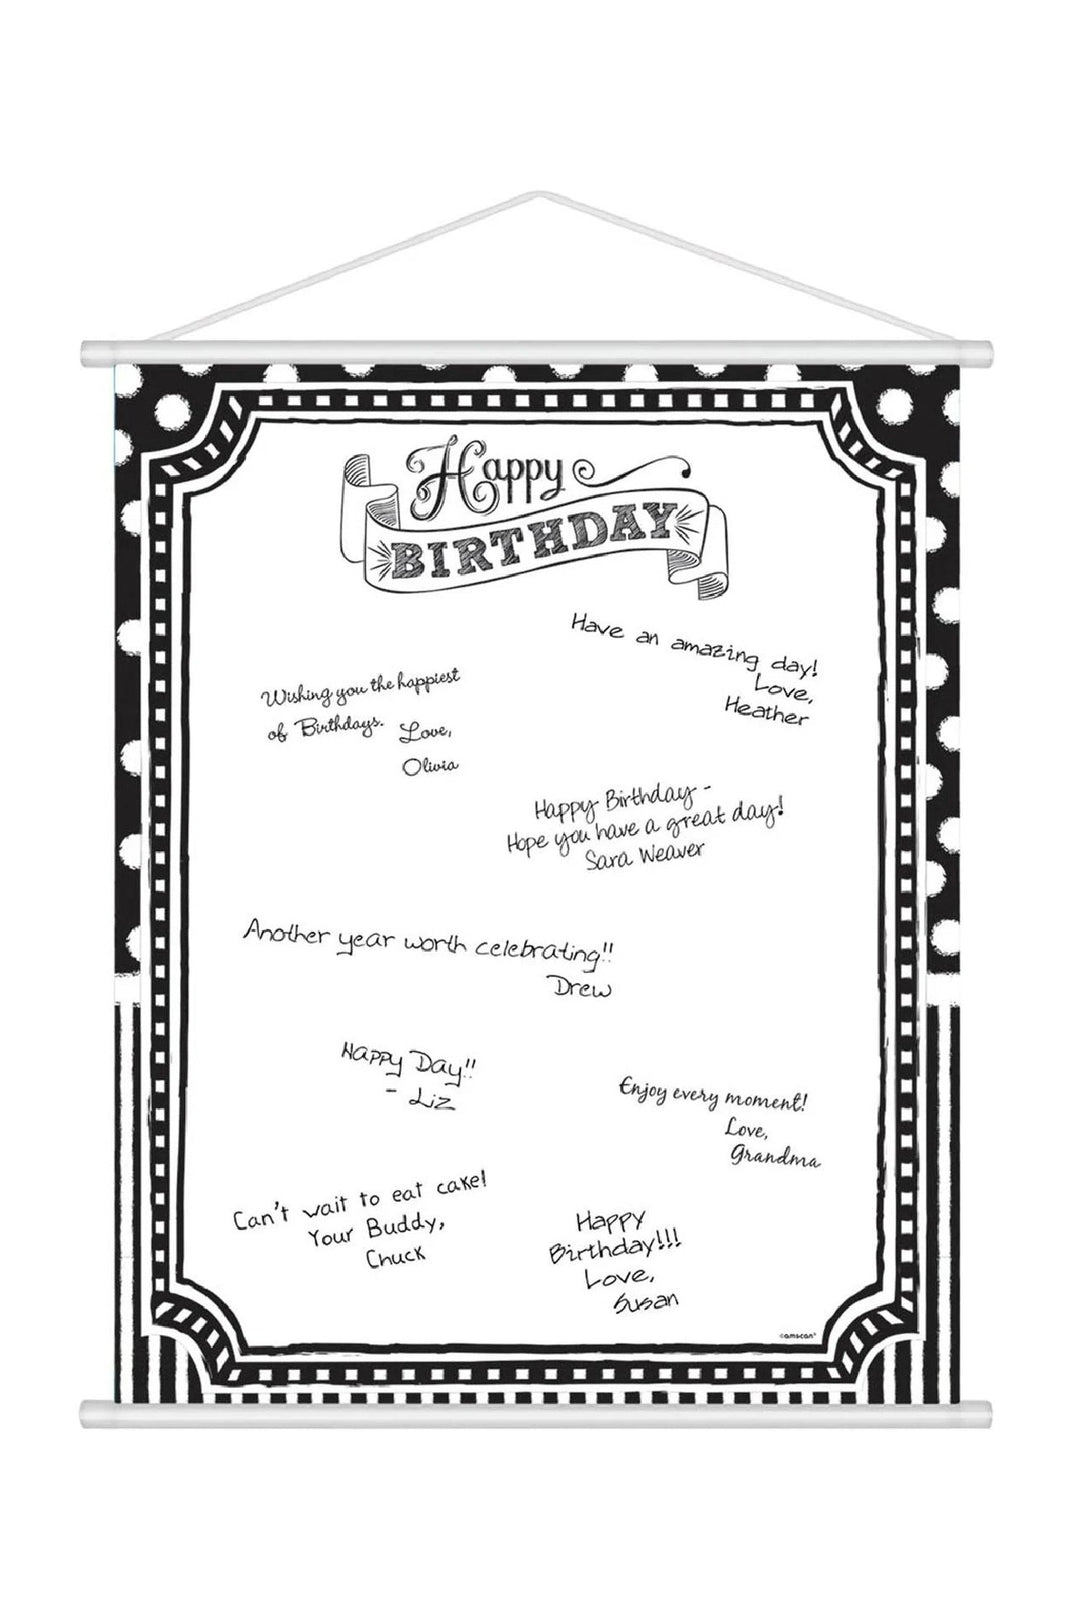 Happy
BIRTHDAY
Have an amazing day!
Love,
Heather
Wishing you the happiest
of Birthdays.
Love,
Olivia
Happy Birthday -
Hope you have a great day!
Sara Weaver
Another year worth celebrating!!
Drew
Happy Day!!
- Liz
Enjoy every moment!
Love,
Grandma
Can't wait to eat cake!
Your Buddy,
Chuck
Happy
Birthday!!!
Love,
Susan
©amscan®